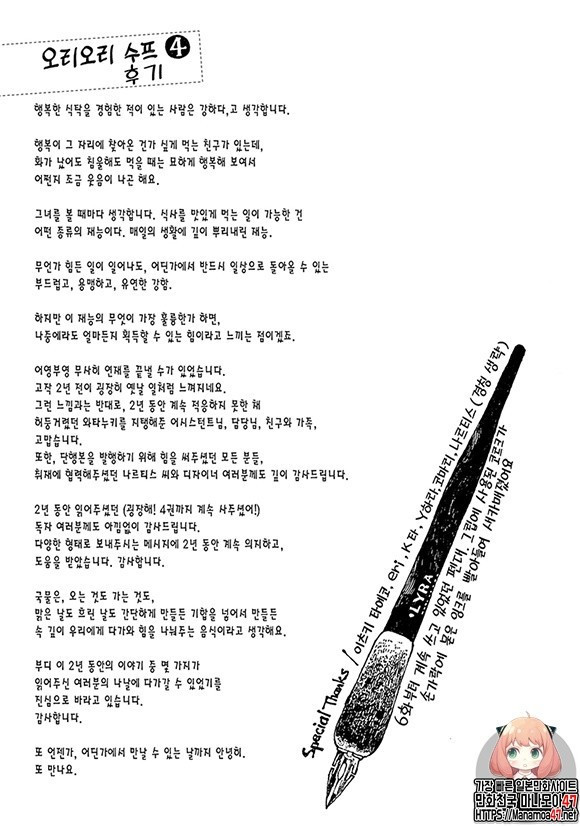 오리오리 수프 4
후기
행복한 식탁을 경험한 적이 있는 사람은 강하다,고 생각합니다.
행복이 그 자리에 찾아온 건가 싶게 먹는 친구가 있는데,
화가 났어도 침울해도 먹을 때는 묘하게 행복해 보여서
어쩐지 조금 웃음이 나곤 해요.
그녀를 볼 때마다 생각합니다. 식사를 맛있게 먹는 일이 가능한 건
어떤 종류의 재능이다. 매일의 생활에 깊이 뿌리내린 재능.
무언가 힘든 일이 일어나도, 어딘가에서 반드시 일상으로 돌아올 수 있는
부드럽고, 용맹하고, 유연한 강함.
하지만 이 재능의 무엇이 가장 훌륭한가 하면,
나중에라도 얼마든지 획득할 수 있는 힘이라고 느끼는 점이겠죠.
어영부영 무사히 연재를 끝낼 수가 있었습니다.
고작 2년 전이 굉장히 옛날 일처럼 느껴지네요.
그런 느낌과는 반대로, 2년 동안 계속 적응하지 못한 채
허둥거렸던 와타누키를 지탱해준 어시스턴트님, 담당님, 친구와 가족,
고맙습니다.
또한, 단행본을 발행하기 위해 힘을 써주셨던 모든 분들,
취재에 협력해주셨던 나르티스 씨와 디자이너 여러분께도 깊이 감사드립니다.
2년 동안 읽어주셨던 (굉장해! 4권까지 계속 사주셨어!)
독자 여러분께도 아낌없이 감사드립니다.
다양한 형태로 보내주시는 메시지에 2년 동안 계속 의지하고,
도움을 받았습니다. 감사합니다.
국물은, 오는 것도 가는 것도,
맑은 날도 흐린 날도 간단하게 만들든 기합을 넣어서 만들든
속 깊이 우리에게 다가와 힘을 나눠주는 음식이라고 생각해요.
부디 이 2년 동안의 이야기 중 몇 가지가
읽어주신 여러분의 나날에 다가갈 수 있었기를
진심으로 바라고 있습니다.
감사합니다.
또 언젠가, 어딘가에서 만날 수 있는 날까지 안녕히.
또 만나요.
Special Thanks / 이츠키 타에코, eri, K타, Y하라, 코바리, 나르티스 (경칭 생략)
LYRA
6화부터 계속 쓰고 있었던 펜대. 그립에 사용된 코르크가
손가락에 묻은 잉크를 빨아들여 새카매졌어요
가장 빠른 일본만화사이트
만화천국 마나모아47
HTTPS://Manamoa47.net